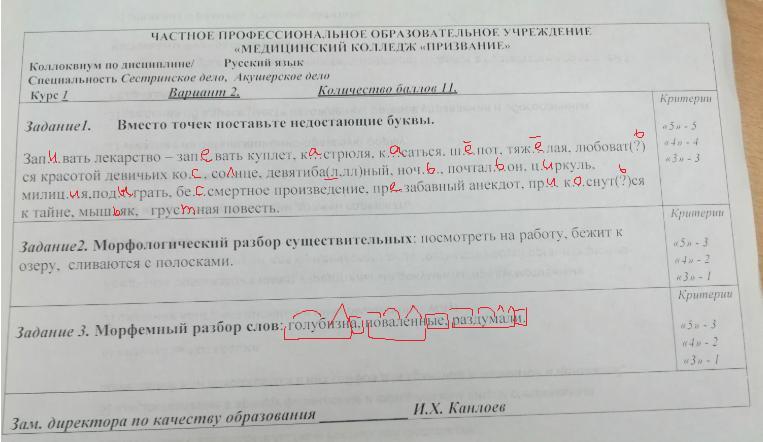 ЧАСТНОЕ ПРОФЕССИОНАЛЬНОЕ ОБРАЗОВАТЕЛЬНОЕ УЧРЕЖДЕНИЕ
«МЕДИЦИНСКИЙ КОЛЛЕДЖ «ПРИЗВАНИЕ»
Коллоквиум по дисциплине/ Русский язык
Специальность Сестринское дело, Акушерское дело
Курс 1 Вариант 2. Количество баллов 11.
Критерии
Задание1. Вместо точек поставьте недостающие буквы.
«5» - 5
«4» - 4
«3» - 3
Запи.вать лекарство – запевать куплет, ка.строля, к.асаться, шёпот, тяжёлая, любоват(?)ь
ся красотой девичьих кос., солнце, девятиба(л.лл)ный, ночь., почтальон, ц.иркуль,
милиц.ия,подыграть, бес.смертное произведение, презабавный анекдот, при ко.снут(?)ься
к тайне, мышьяк, грустная повесть.
Задание2. Морфологический разбор существительных: посмотреть на работу, бежит к
озеру, сливаются с полосками.
Критерии
«5» - 3
«4» - 2
«3» - 1
Задание 3. Морфемный разбор слов: голубизна, поваленные, раздумали.
Критерии
«5» - 3
«4» - 2
«3» - 1
Зам. директора по качеству образования ____________ И.Х. Канлоев